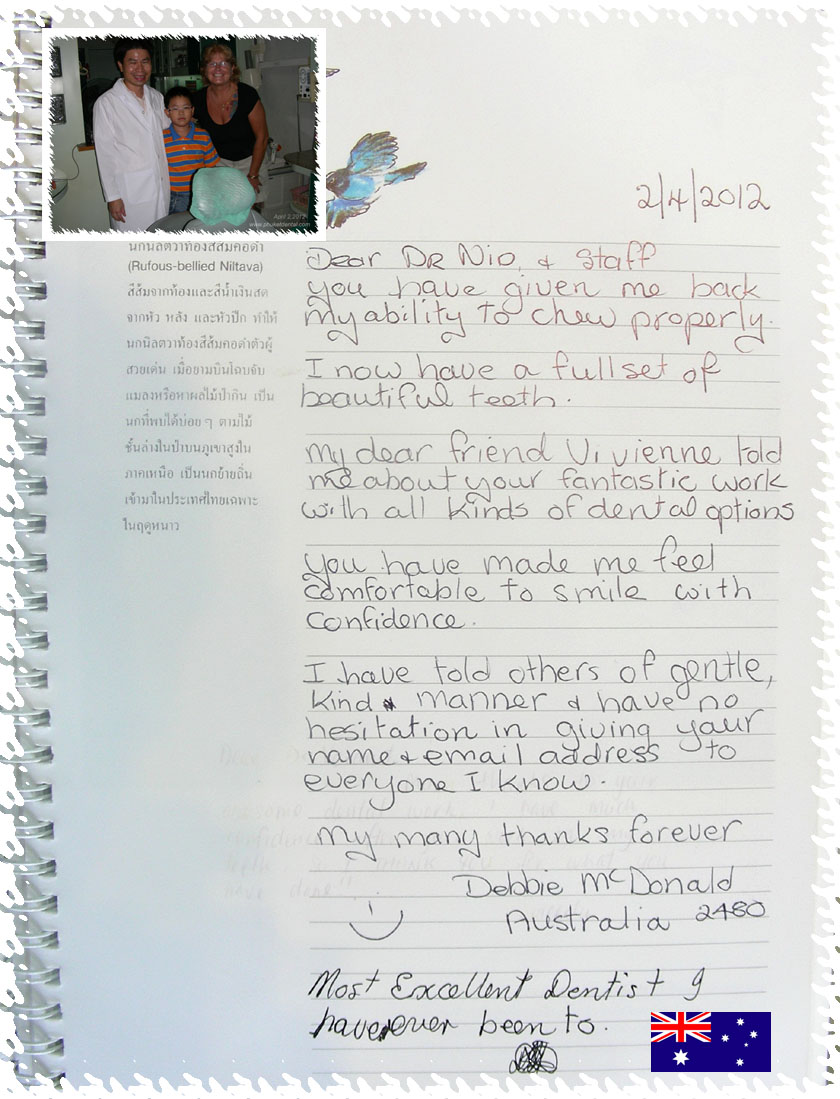 April 2, 2012
www.phuketdental.com
2/4/2012
นกนิลตวาท้องสีส้มคอดำ
(Rufous-bellied Niltava)
สีส้มจากท้องและสีน้ำเงินสด
จากหัว หลัง และหัวปีก ทำให้
นกนิลตวาท้องสีส้มคอดำตัวผู้
สวยเด่น เมื่อยามบินโฉบจับ
แมลงหรือหาผลไม้ป่ากิน เป็น
นกที่พบได้บ่อย ๆ ตามไม้
ชั้นล่างในป่าบนภูเขาสูงใน
ภาคเหนือ เป็นนกย้ายถิ่น
เข้ามาในประเทศไทยเฉพาะ
ในฤดูหนาว
Dear DR Nio, & Staff
you have given me back
my ability to chew properly.
I now have a full set of
beautiful teeth.
my dear friend Vivienne told
me about your fantastic work
with all kinds of dental options
you have made me feel
comfortable to smile with
confidence.
I have told others of gentle,
kind manner & have no
hesitation in giving your
name & email address to
everyone I know.
my many thanks forever
Debbie McDonald
Australia 2480
Most Excellent Dentist I
have ever been to.